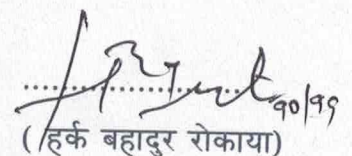 १०/१९
( हर्क बहादुर रोकाया)